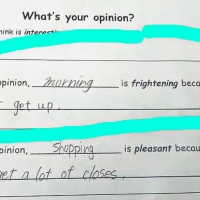 What's your opinion?
hink is interesti
pinion, morning is frightening beca
get up.
pinion, Shopping is pleasant becau
et a lot of closes.